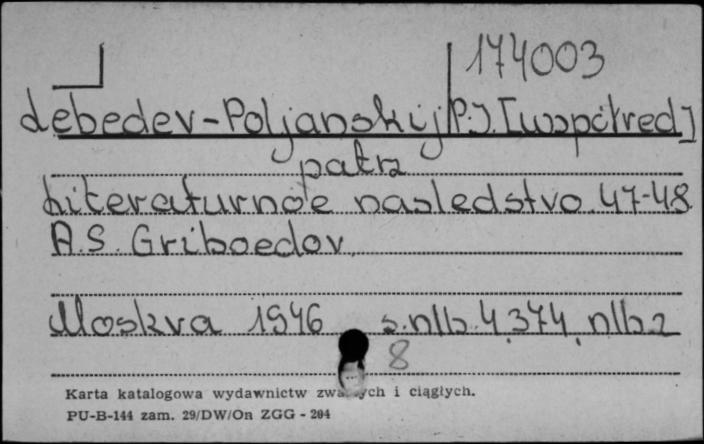 174003
Lebedev-Poljanskij P.I. [współred]
patrz
Literaturnoe nasledstvo. 47-48.
A.S. Griboedov.
Moskva 1946 s. nlb. 4, 374, nlb. 2
8
Karta katalogowa wydawnictw zwartych i ciągłych.
PU-B-144 zam. 29/DW/On ZGG - 204